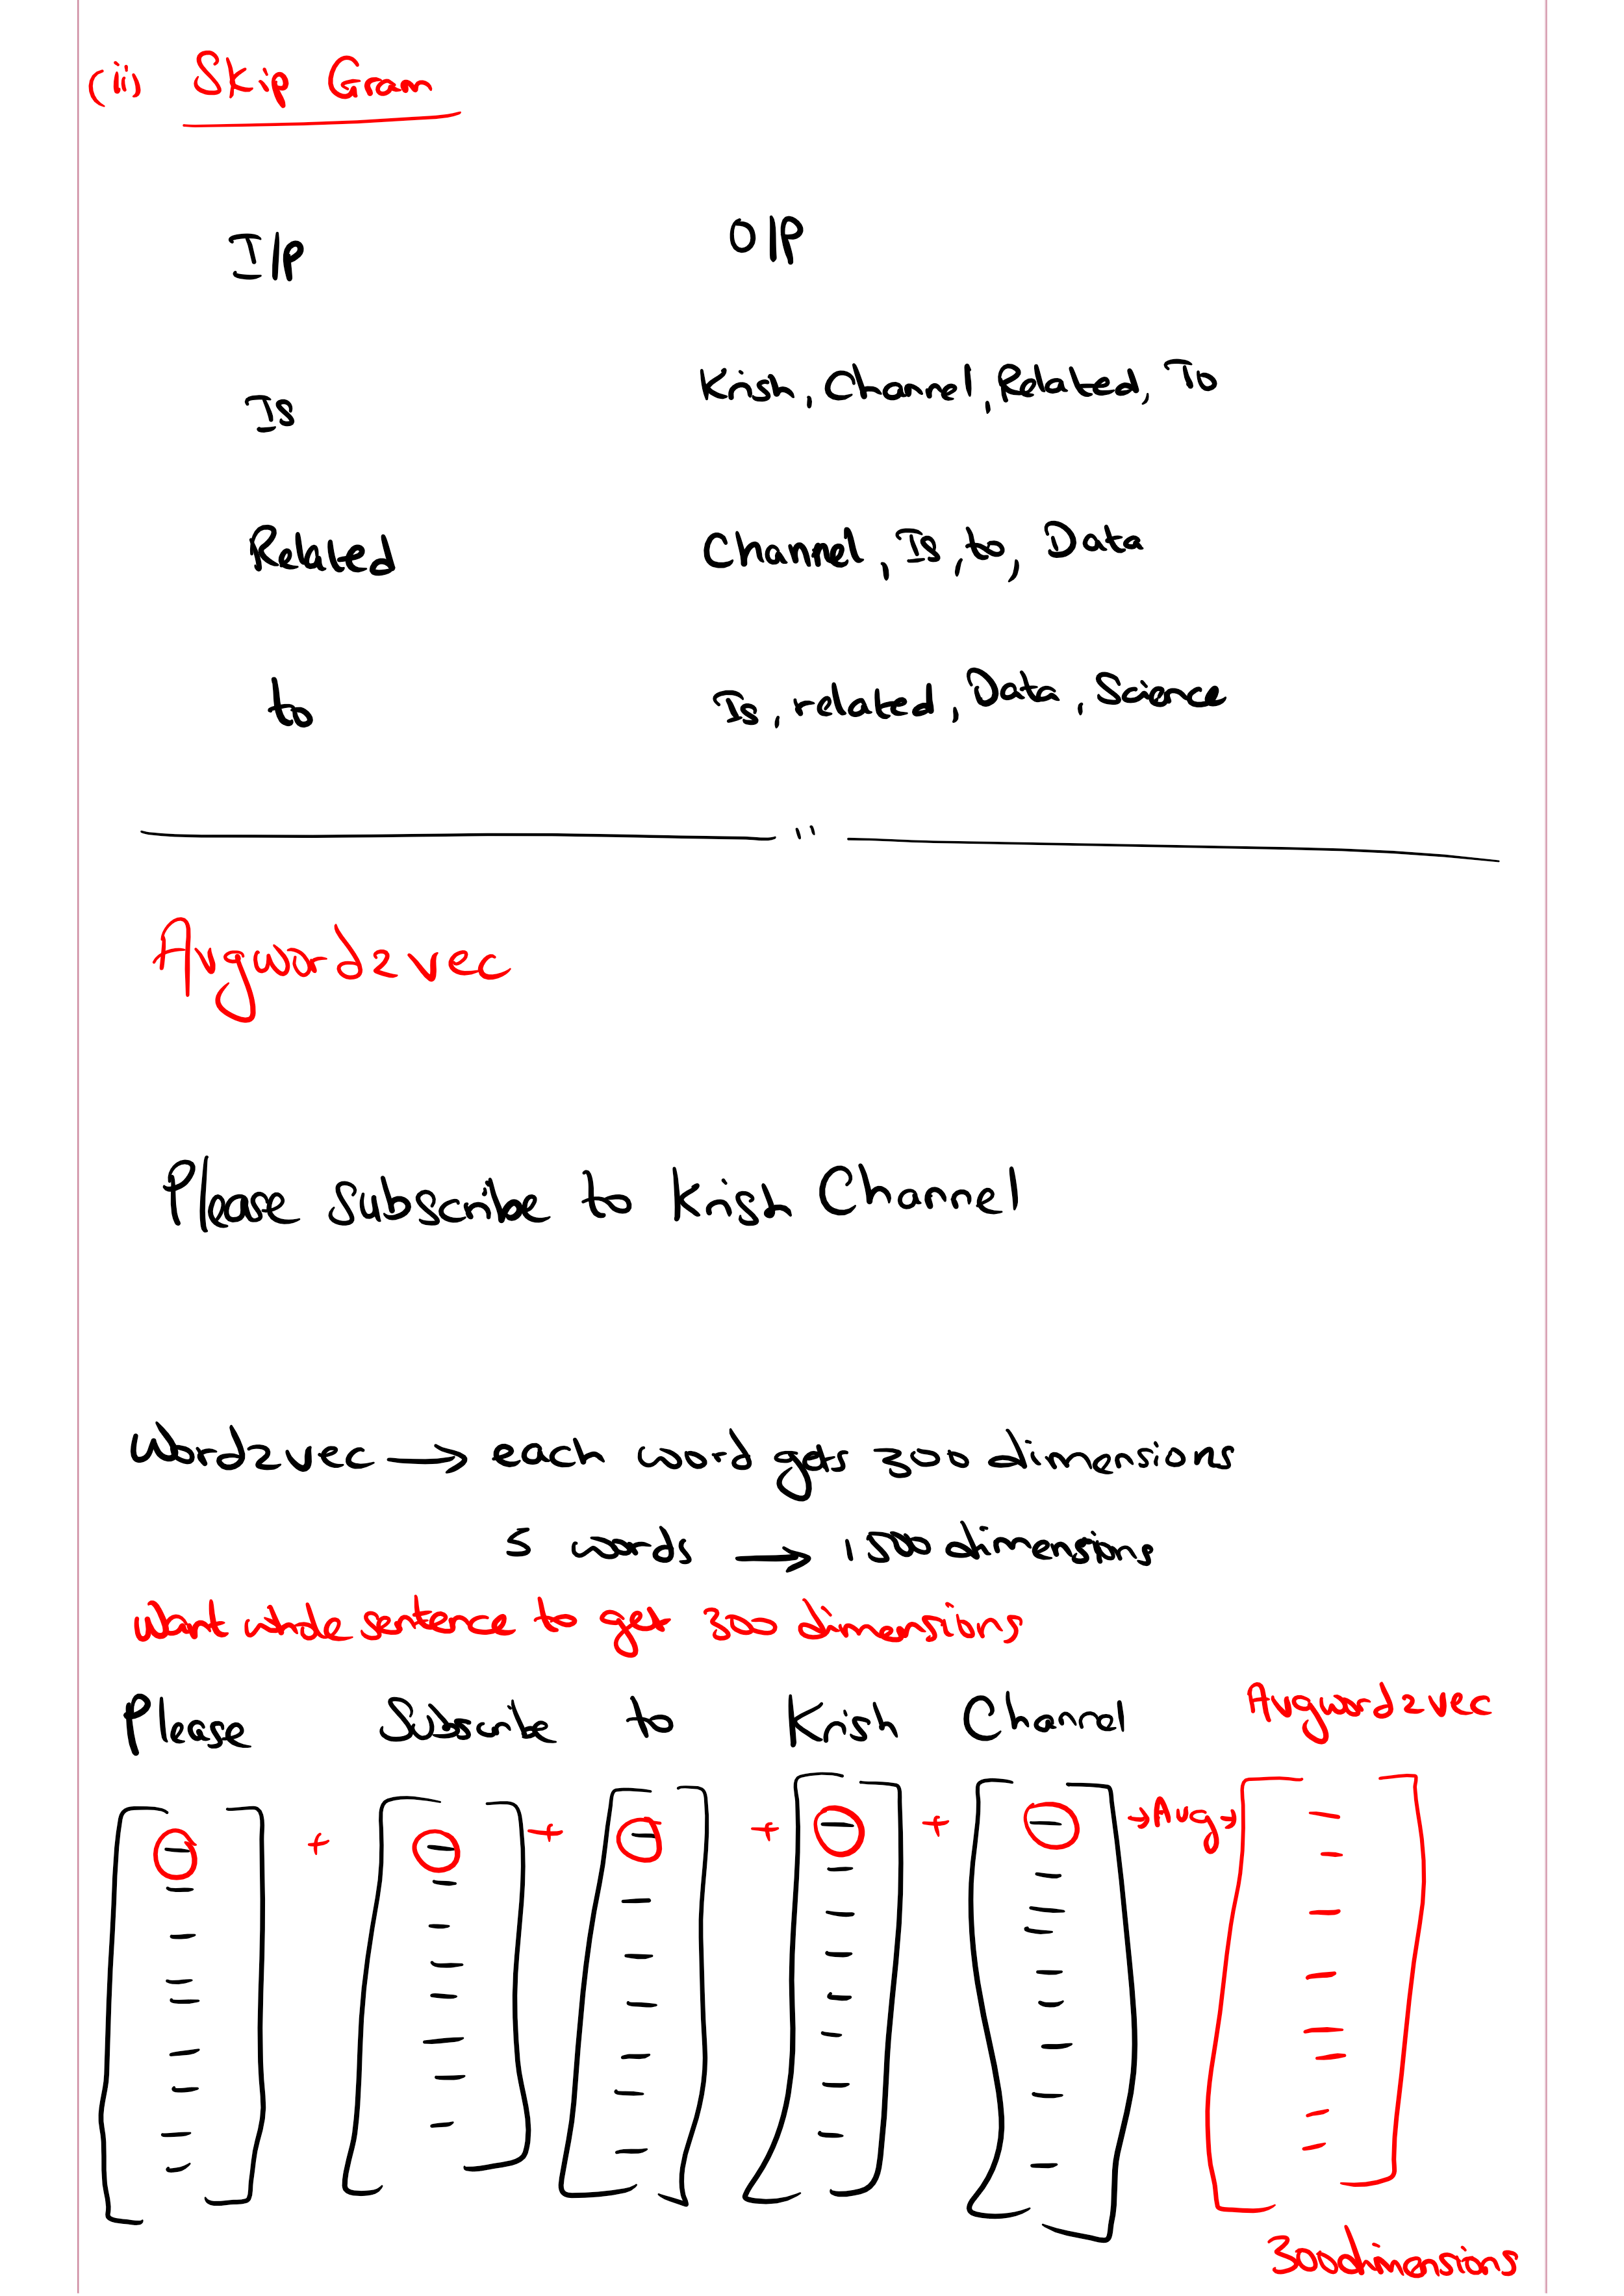 (ii) Skip Gram
I/P O/P
Is Krish, Channel, Related, To
Related Channel, Is, to, Data
to Is, related, Data, Science
Avgword2vec
Please Subscribe to Krish Channel
Word2vec → each word gets 300 dimensions
5 words → 1500 dimensions
Want whole sentence to get 300 dimensions
Please Subscribe to Krish Channel Avgword2vec
+ + + + →Avg→
300dimensions